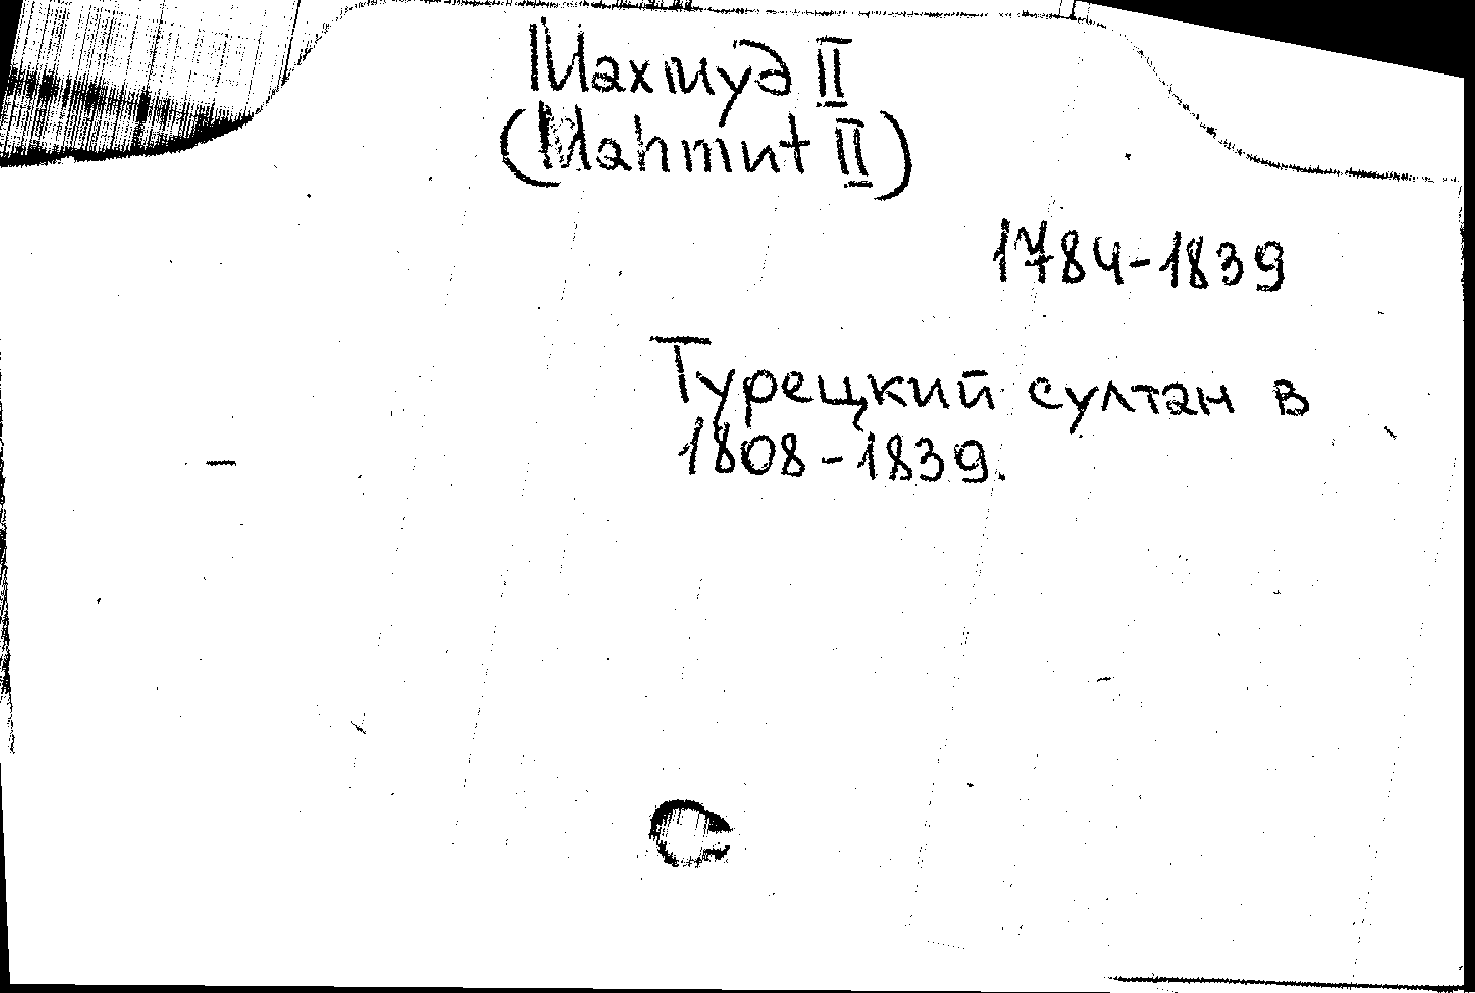 Махмуд II
(Mahmut II)
1784-1839
Турецкий султан в
1808-1839.